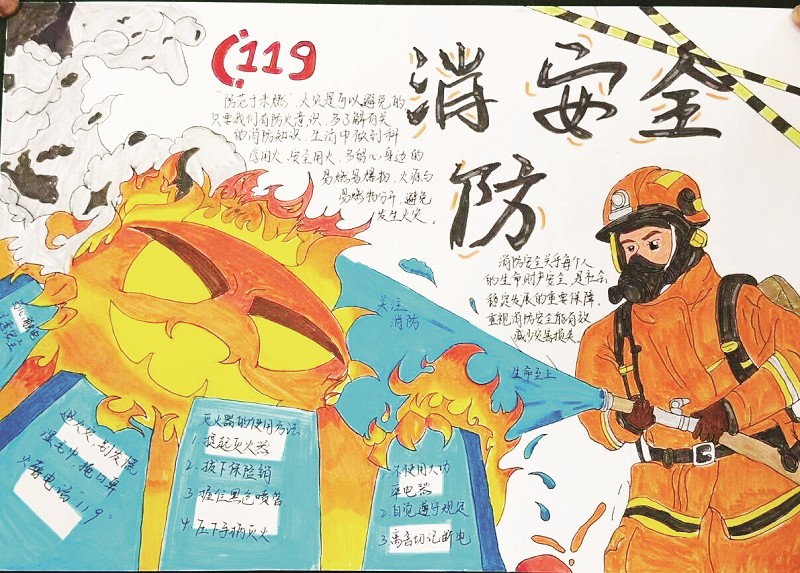 119
消 安全
防
"防范于未燃"火灾是可以避免的
只要我们有防火意识,多了解有关
的消防知识 生活中做到科
学用火、安全用火、多留心身边的
易燃易爆物,火源与
易燃物分开,避免
发生火灾。
消防安全关乎每个人
的生命财产安全,是社会
稳定发展的重要保障,
重视消防安全能有效
减少灾害损失。
关注
消防
生命至上
遇火灾,勿慌慌
湿毛巾 捂口鼻
火警电话"119"
灭火器的使用方法
1. 提起灭火器
2. 拔下保险销
3 握住黑色喷管
4 压下手柄灭火
1.不使用大功
率电器
2.自觉遵守规定
3.离舍切记断电